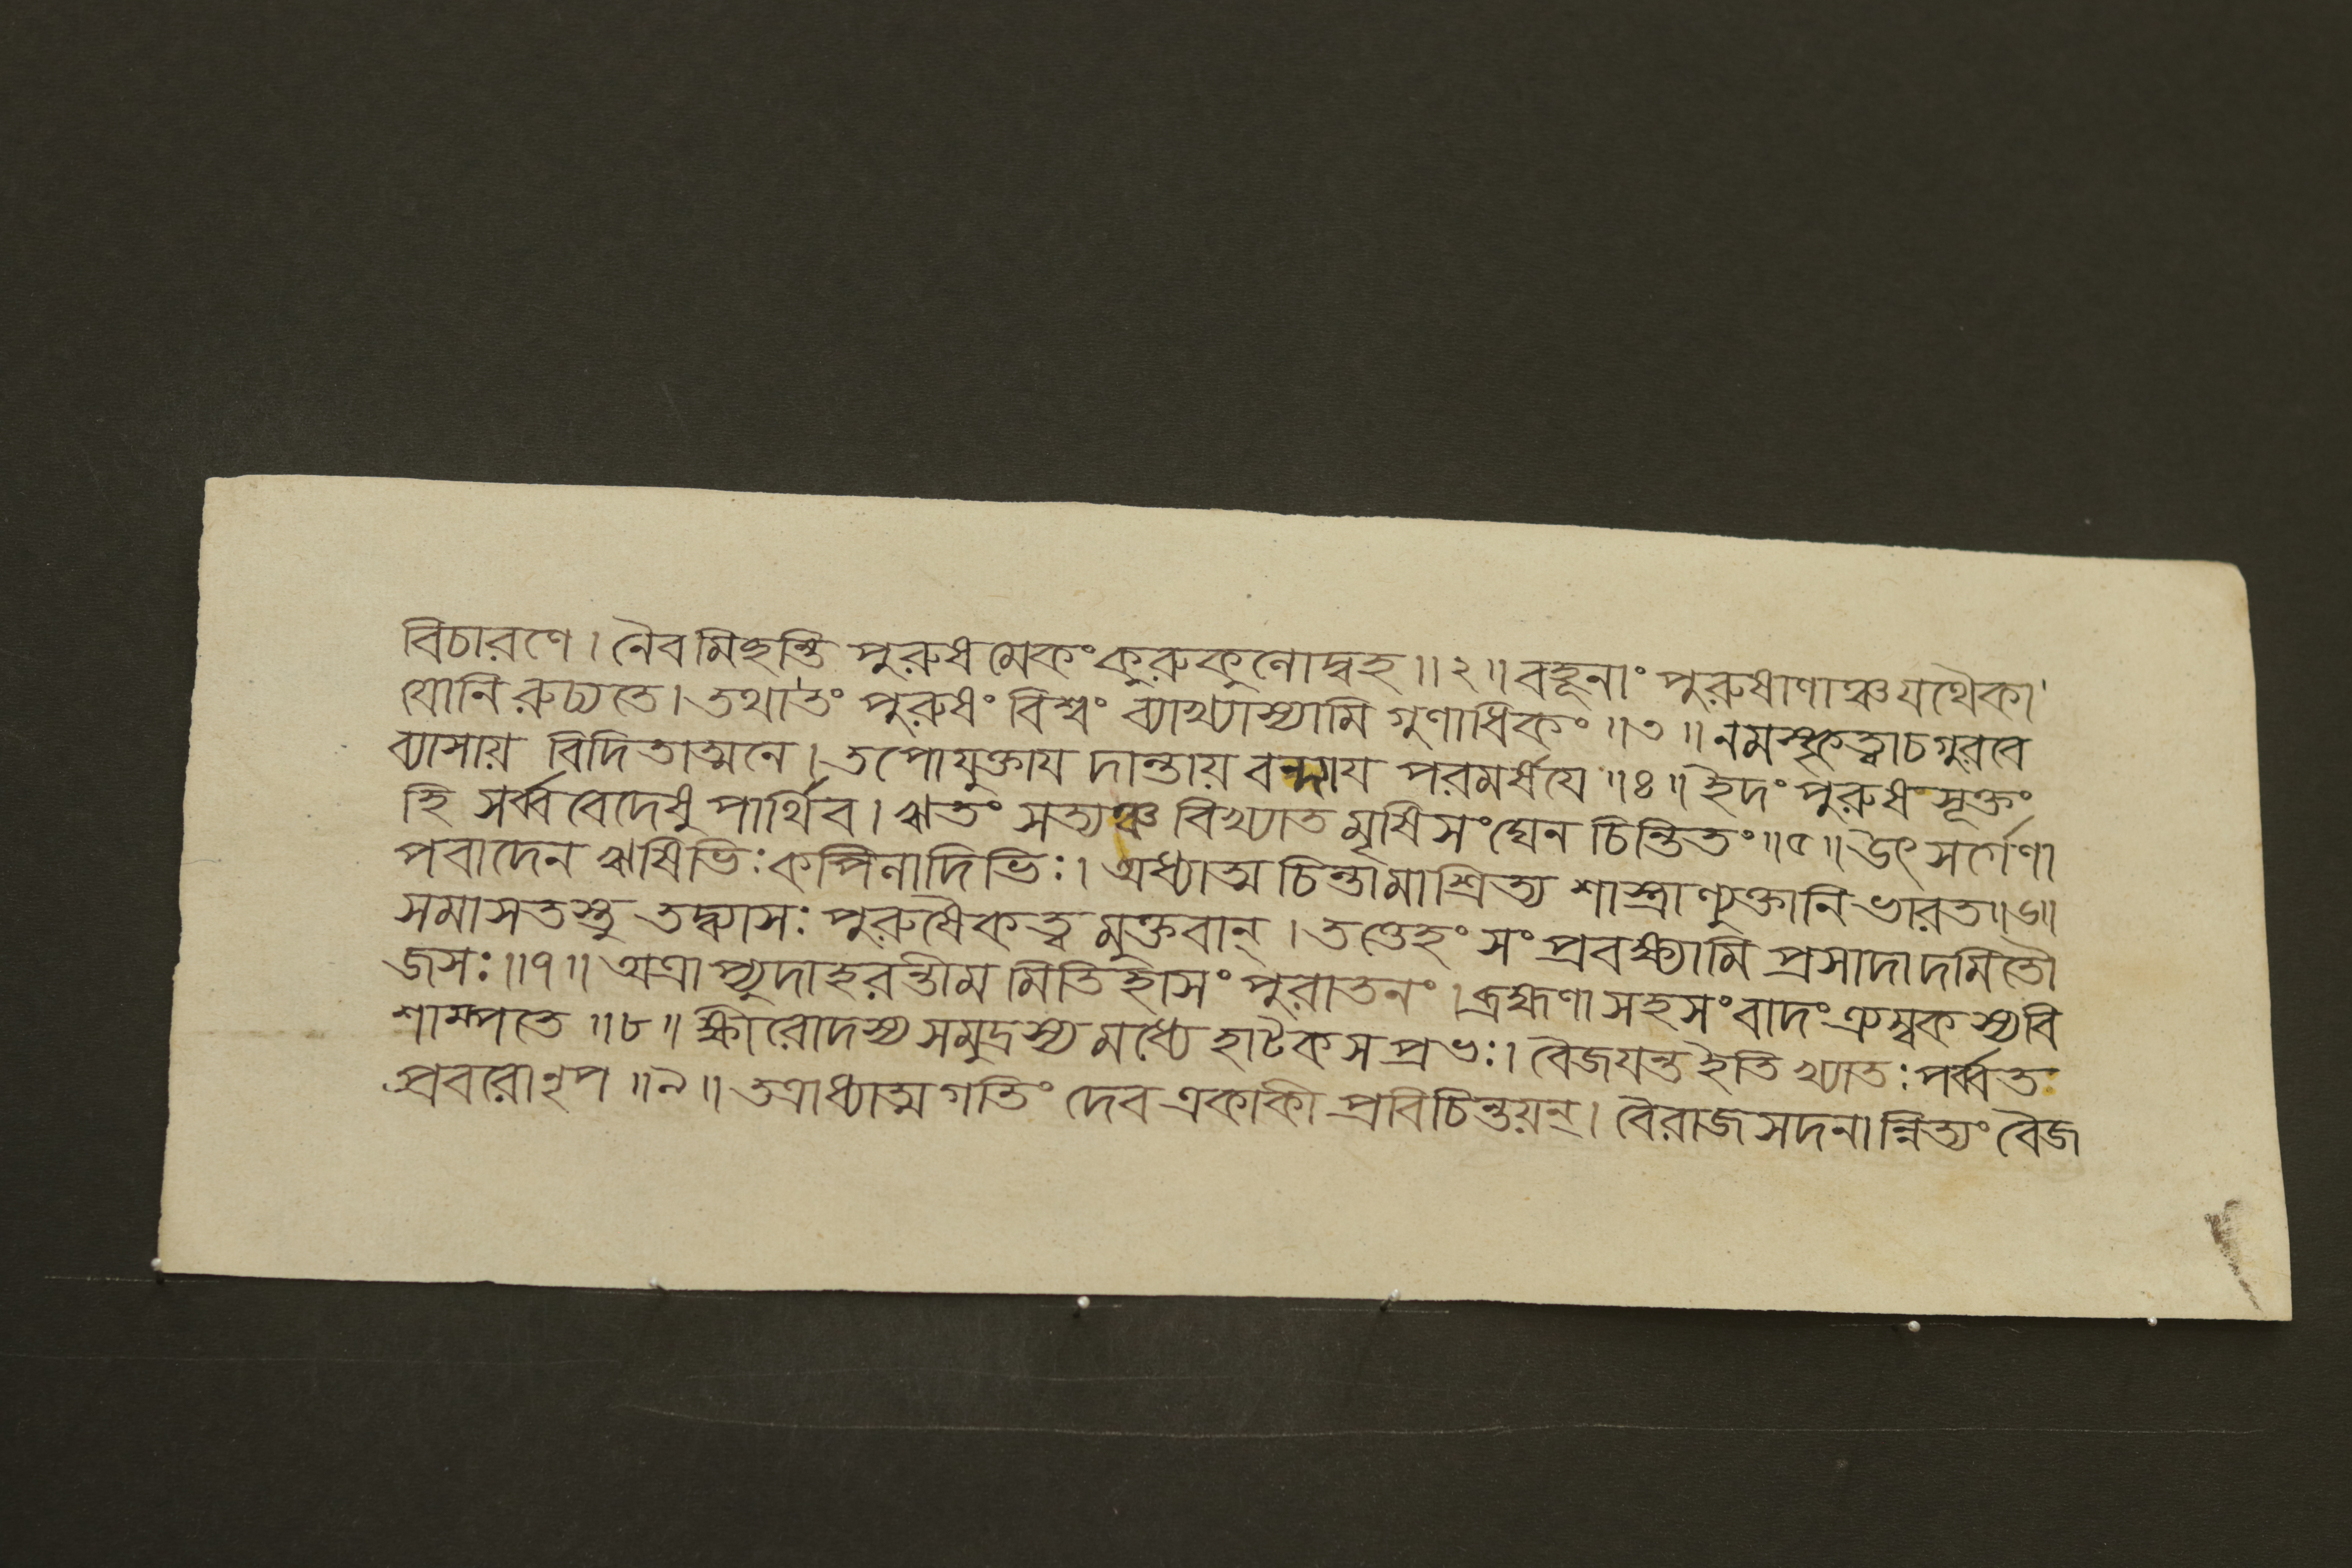 বিচারণে । নৈবমিচ্ছন্তি পুরুষমেকং কুরুকুলোদ্বহ ॥ ২ ॥ বহূনাং পুরুষাণাঞ্চ যথৈকা
যোনিরুচ্যতে । তথা তং পুরুষং বিশ্বং ব্যাখ্যাস্যামি গুণাধিকং ॥ ৩ ॥ নমস্কৃত্বা চ গুরবে
ব্যাসায় বিদিতাত্মনে । তপোযুক্তায দান্তায় বন্দ্যায পরমর্ষযে ॥ ৪ ॥ ইদং পুরুষসূক্তং
হি সর্ব্ববেদেষু পার্থিব । ঋতং সত্যঞ্চ বিখ্যাতমৃষিসংঘেন চিন্তিতং ॥ ৫ ॥ উৎসর্গেণা
পবাদেন ঋষিভিঃ কপিলাদিভিঃ । অধ্যাত্মচিন্তামাশ্রিত্য শাস্ত্রাণ্যুক্তানি ভারত ॥ ৬ ॥
সমাসতস্তু তদ্ব্যাসঃ পুরুষৈকত্বমুক্তবান্ । তত্তেহং সংপ্রবক্ষ্যামি প্রসাদাদমিতৌ
জসঃ ॥ ৭ ॥ অত্রাপ্যুদাহরন্তীমমিতিহাসং পুরাতনং । ব্রহ্মণা সহ সংবাদং ত্র্যম্বকস্য বি
শাম্পতে ॥ ৮ ॥ ক্ষীরোদস্য সমুদ্রস্য মধ্যে হাটকসপ্রভঃ । বৈজযন্ত ইতি খ্যাতঃ পর্ব্বত
প্রবরো নৃপ ॥ ৯ ॥ তত্রাধ্যাত্মগতিং দেব একাকী প্রবিচিন্তয়ন্ । বৈরাজসদনান্নিত্যং বৈজ